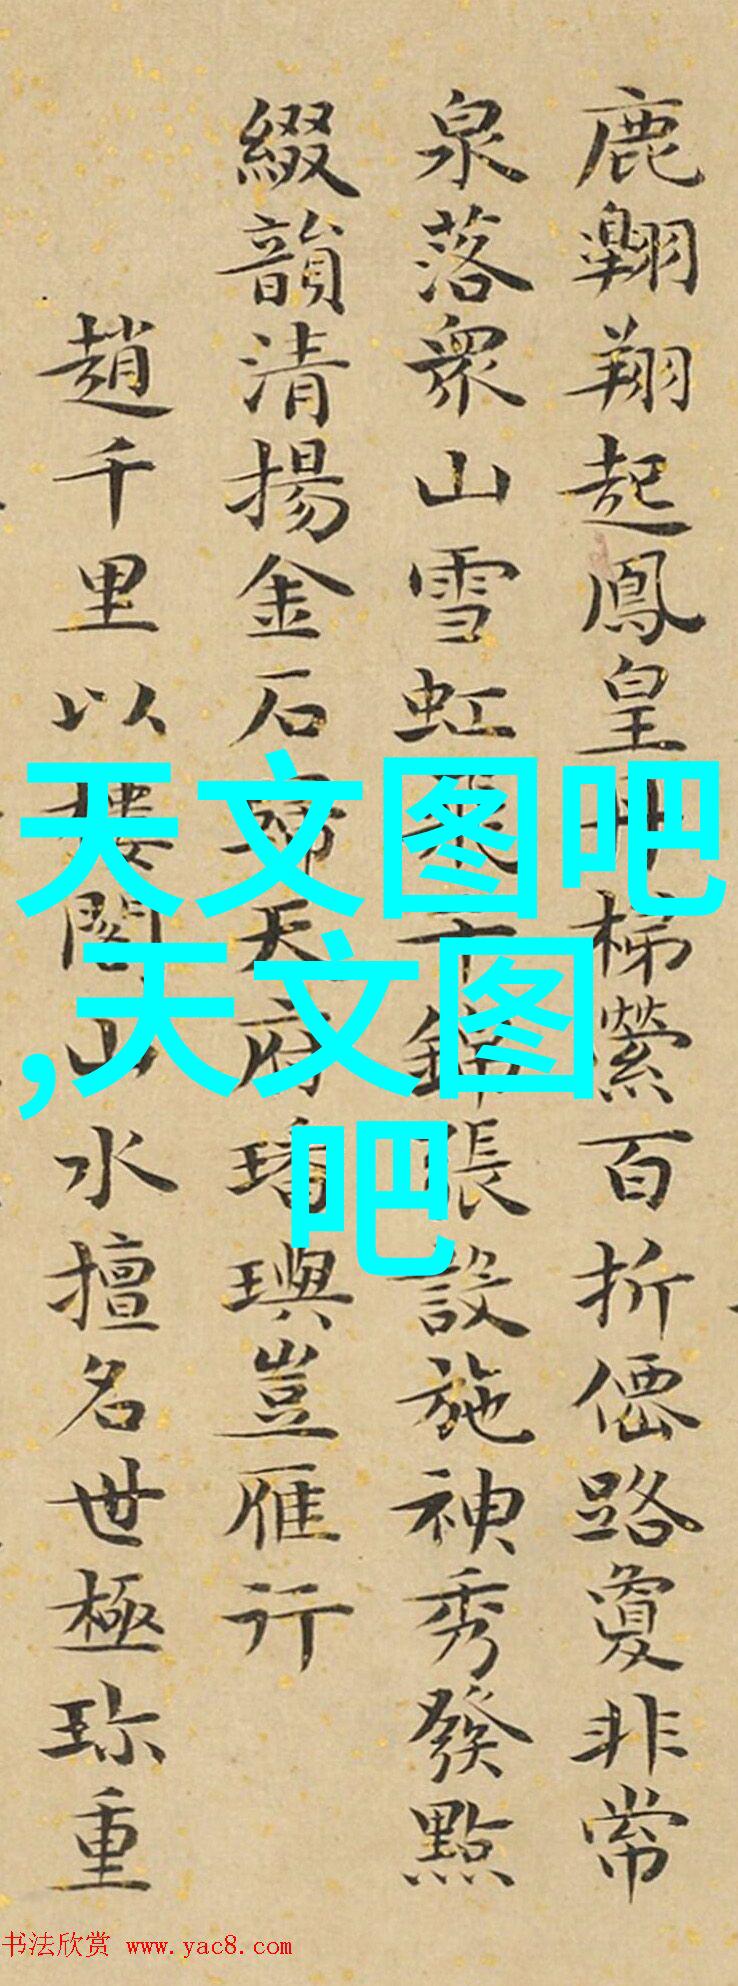 鹿翱翔起鳳皇丹梯縈百折僊路夐非常
泉落衆山雪虹飛千錦張設施神秀發點
綴韻清揚金石歸天府璠璵豈雁行
趙千里以樓閣山水擅名世極珎重
天文图吧
,天文图
吧
书法欣赏 www.yac8.com